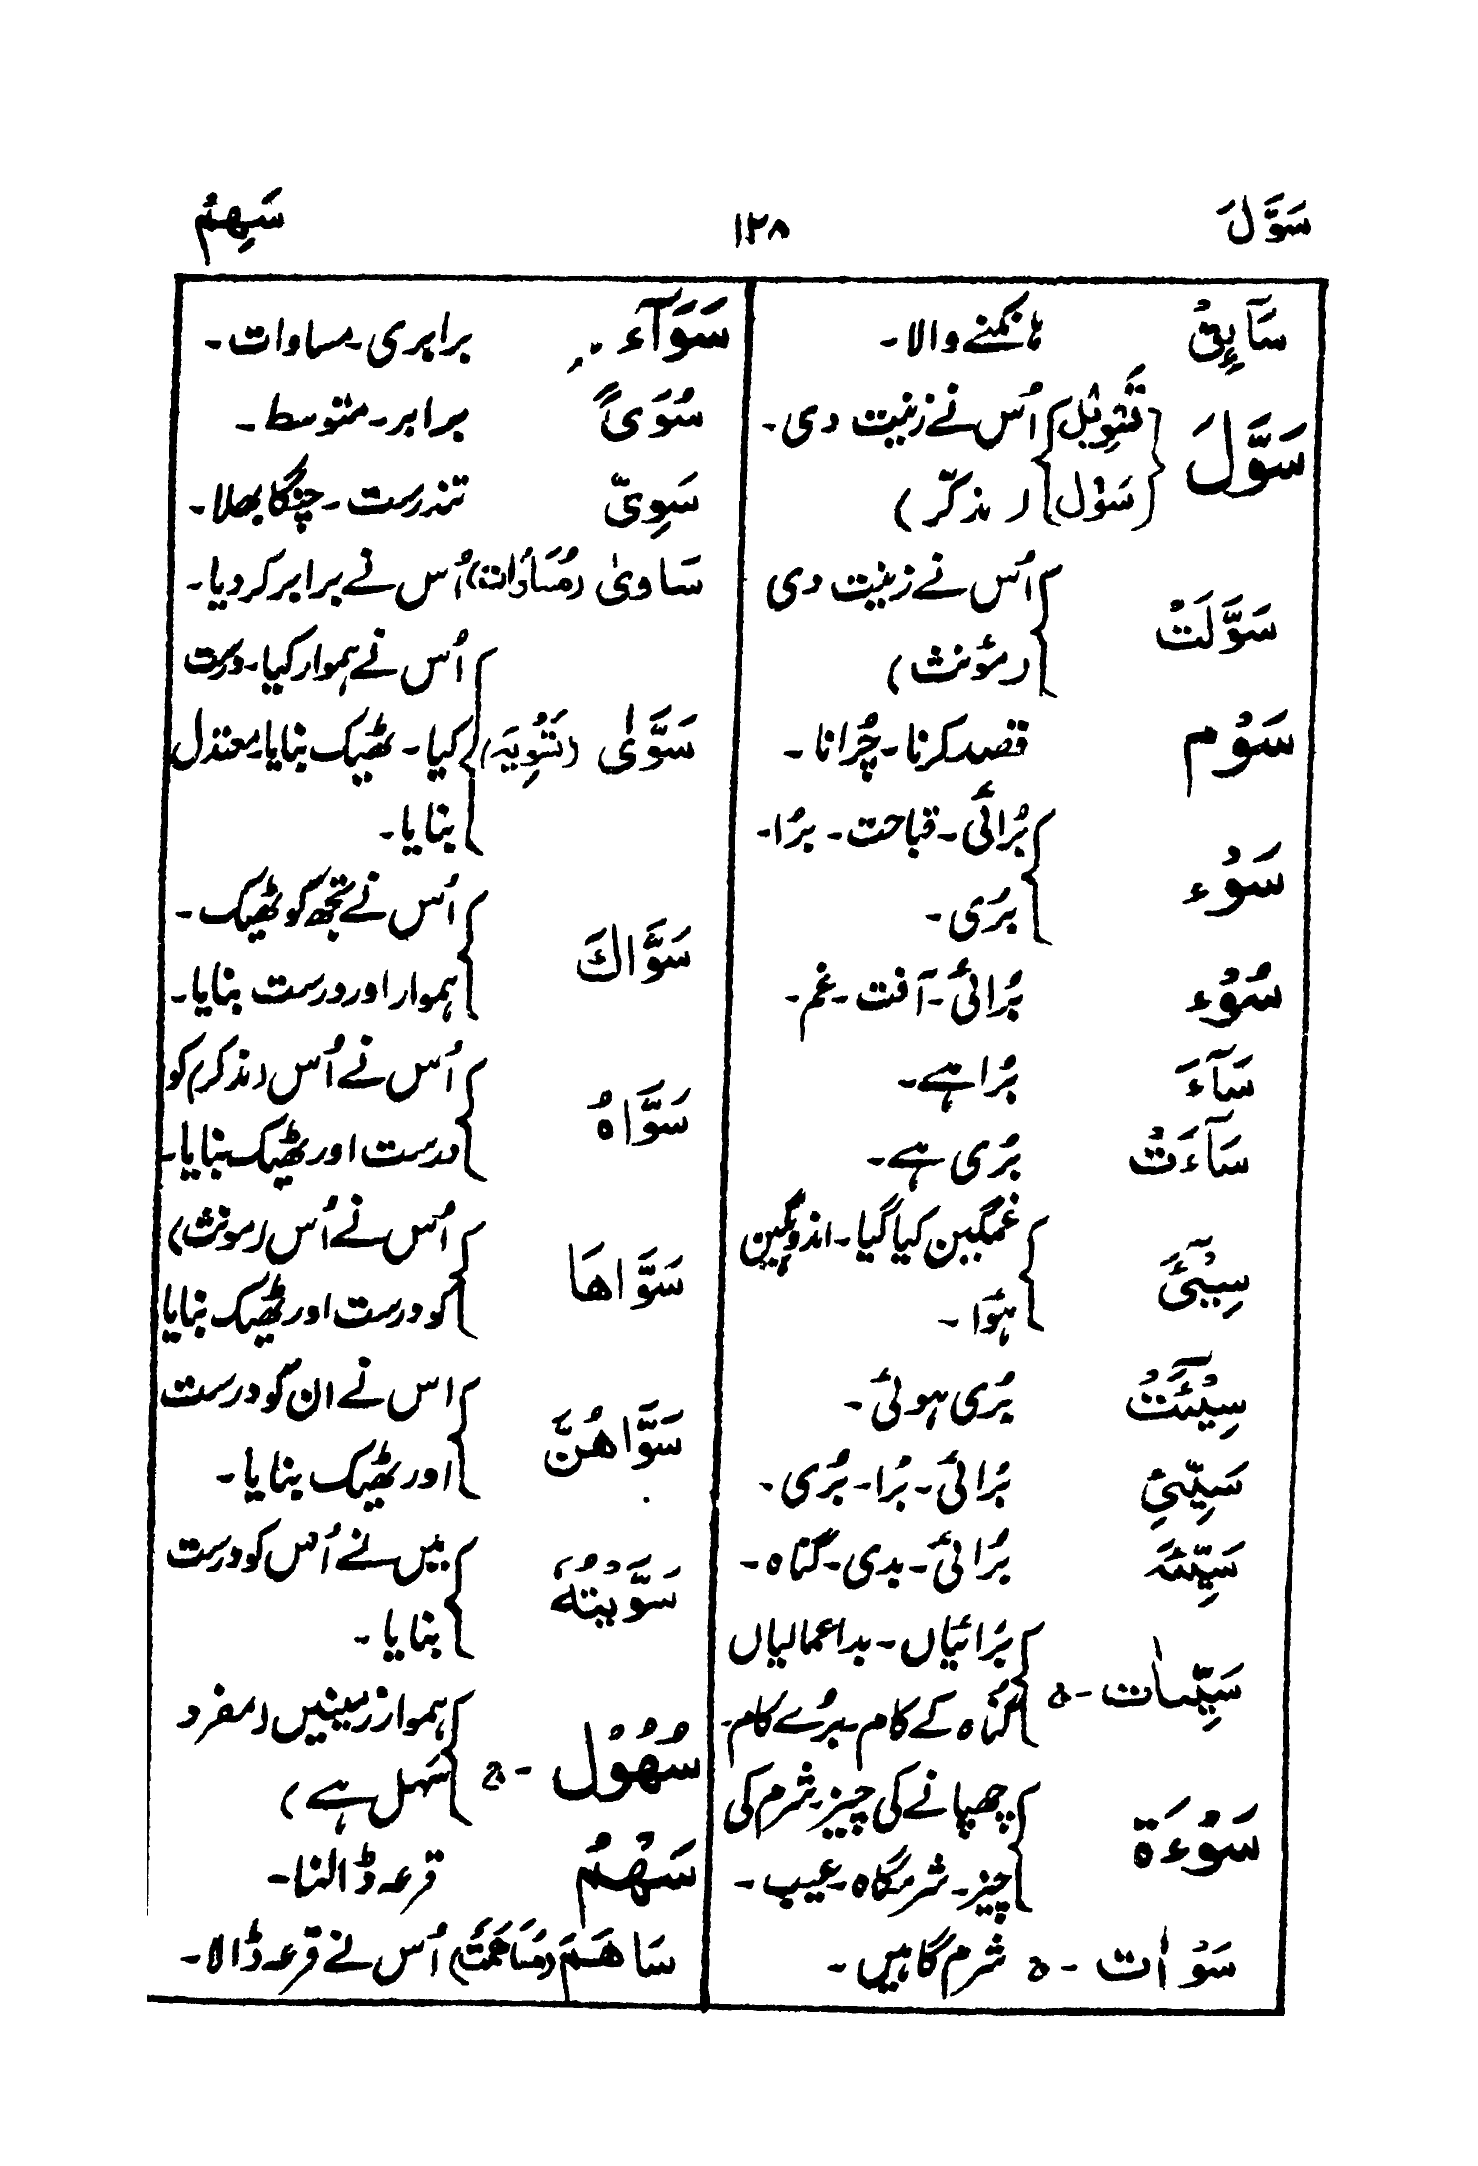 سَوَّلَ ۱۲۸ سَهِمُ
سَآئِقٌ ہانکنے والا۔
سَوَّلَ (تَسْوِیْل) اُس نے زینت دی۔
(سَوْل) (مذکّر)
سَوَّلَتْ اُس نے زینت دی
(مؤنث)
سَوْم قصد کرنا۔ چُرانا۔
سَوْء بُرائی۔ قباحت۔ بُرا۔
بُری۔
سُوْء بُرائی۔ آفت۔ غم۔
سَآءَ بُرا ہے۔
سَآءَتْ بُری ہے۔
سِیْٓئَ غمگین کیا گیا۔ اندوہگین
ہوا۔
سِیْٓئَتْ بُری ہوئی۔
سَیِّئِ بُرائی۔ بُرا۔ بُری۔
سَیِّئَہ بُرائی۔ بدی۔ گناہ۔
سَیِّاٰت۔ ة بُرائیاں۔ بداعمالیاں
گناہ کے کام۔ بُرے کام۔
سَوْءَة چھپانے کی چیز۔ شرم کی
چیز۔ شرمگاہ۔ عیب۔
سَوْاٰت۔ ة شرم گاہیں۔
سَوَآء برابری۔ مساوات۔
سُوًی برابر۔ متوسط۔
سَوِیّ تندرست۔ چنگا بھلا۔
سَاویٰ (مُسَاوَات) اُس نے برابر کردیا۔
اُس نے ہموار کیا۔ درست
سَوّٰی (تَسْوِیَہ) کیا۔ ٹھیک بنایا۔ معتدل
بنایا۔
سَوَّاكَ اُس نے تجھ کو ٹھیک۔
ہموار اور درست بنایا۔
سَوَّاہُ اُس نے اُس (مذکر) کو
درست اور ٹھیک بنایا۔
سَوَّاھَا اُس نے اُس (مونث)
کو درست اور ٹھیک بنایا
سَوَّاھُنَّ اس نے ان کو درست
اور ٹھیک بنایا۔
سَوَّیْتُهٗ میں نے اُس کو درست
بنایا۔
سُھُوْل۔ ة ہموار زمینیں (مفرد
سَہل ہے)
سَهْمُ قرعہ ڈالنا۔
سَاھَمَ (مُسَاھَمَتَ) اُس نے قرعہ ڈالا۔